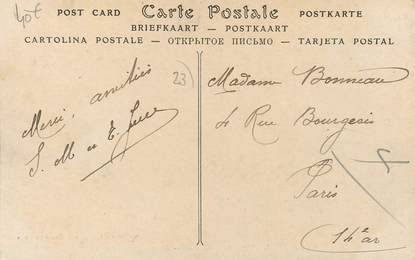 Lot
POST CARD Carte Postale POSTKARTE
BRIEFKAART — POSTKAART
CARTOLINA POSTALE — ОТКРЫТОЕ ПИСЬМО — TARJETA POSTAL
23
Merci, amitiés
S. M et E.
Madame Bonneau
4 Rue Bourgeois
Paris
14e ar